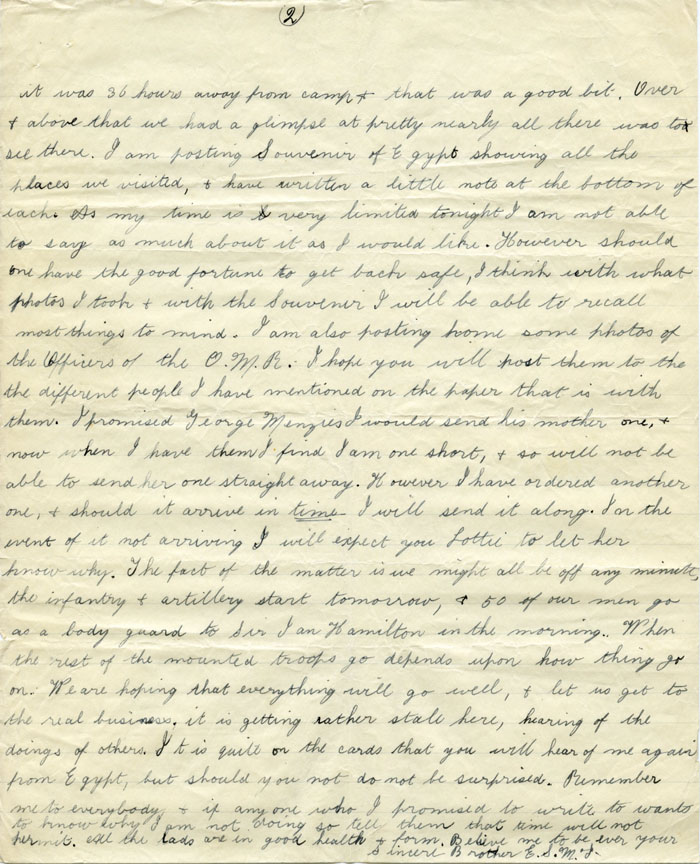 (2)
it was 36 hours away from camp & that was a good bit. Over
& above that we had a glimpse at pretty nearly all there was to
see there. I am posting Souvenir of Egypt showing all the
places we visited, & have written a little note at the bottom of
each. As my time is very limited tonight I am not able
to say as much about it as I would like. However should
one have the good fortune to get back safe, I think with what
photos I took & with the Souvenir I will be able to recall
most things to mind. I am also posting home some photos of
the Officers of the O.M.R. I hope you will post them to the
the different people I have mentioned on the paper that is with
them. I promised George Menzies I would send his mother one, &
now when I have them I find I am one short, & so will not be
able to send her one straight away. However I have ordered another
one, & should it arrive in time I will send it along. In the
event of it not arriving I will expect you Lottie to let her
know why. The fact of the matter is we might all be off any minute,
the infantry & artillery start tomorrow, & 50 of our men go
as a body guard to Sir Ian Hamilton in the morning. When
the rest of the mounted troops go depends upon how thing go
on. We are hoping that everything will go well, & let us get to
the real business. it is getting rather stale here, hearing of the
doings of others. It is quite on the cards that you will hear of me again
from Egypt, but should you not do not be surprised. Remember
me to everybody, & if any one who I promised to write to wants
to know why I am not doing so tell them that time will not
permit. All the lads are in good health & form. Believe me to be ever your
Sincere Brother E.S.M.J.